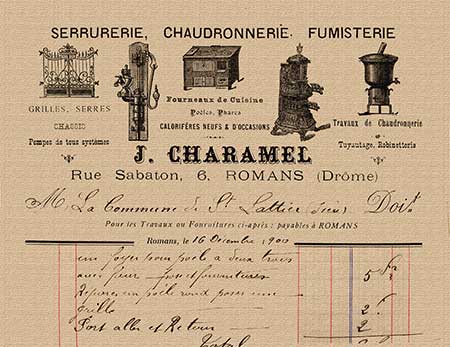 SERRURERIE, CHAUDRONNERIE, FUMISTERIE
GRILLES, SERRES
CHASSIS
Pompes de tous systèmes
Fourneaux de Cuisine
Poêles, Phares
CALORIFÈRES NEUFS & D'OCCASIONS
Travaux de Chaudronnerie
Tuyautage, Robinetterie
J. CHARAMEL
Rue Sabaton, 6, ROMANS (Drôme)
M. La Commune de St Lattier (Isère) Doit
Pour les Travaux ou Fournitures ci-après : payables à ROMANS
Romans, le 16 Décembre 1900
un foyer pour poële à deux trois
avec fleur pose et fournitures 5 Fr
un poêle rond poser une
grille 2
Port aller et Retour 2
Total